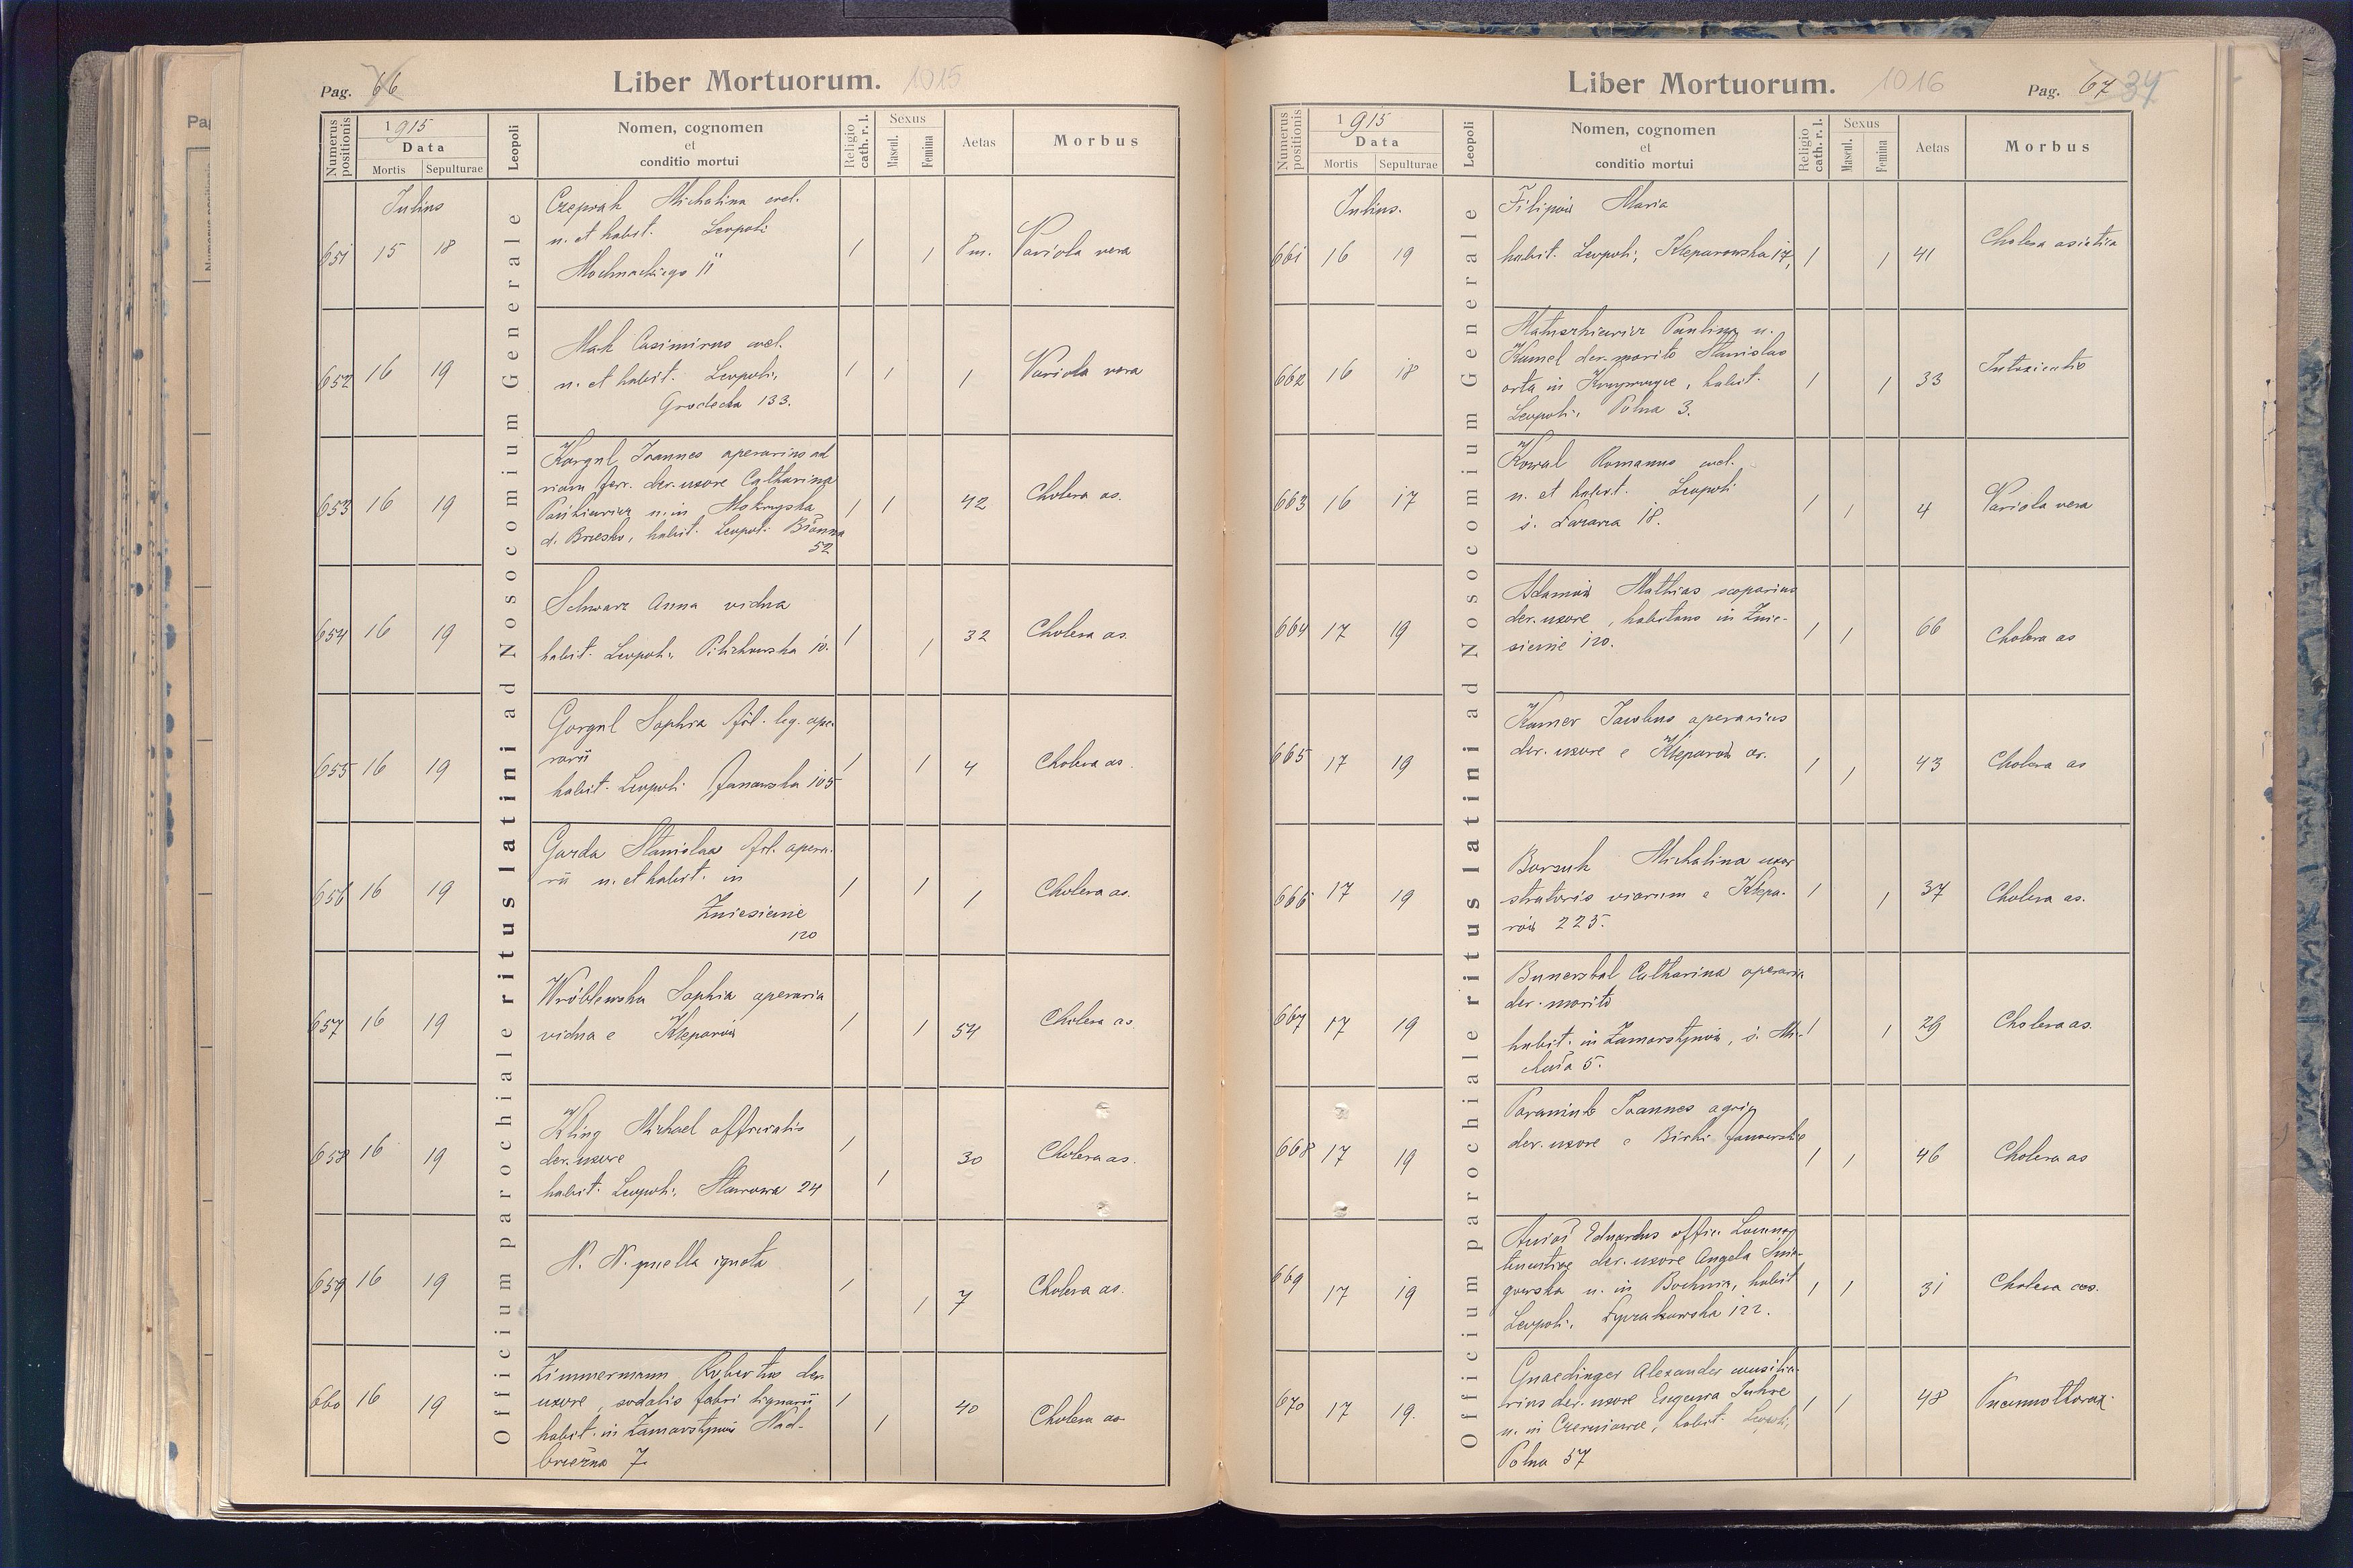 Pag. 66 Liber Mortuorum. 1015
Numerus positionis
1915
Data
Mortis Sepulturae
Leopoli
Nomen, cognomen
et
conditio mortui
Religio cath. r. l.
Sexus
Mascul. Femina
Aetas
Morbus
Officium parochiale ritus latini ad Nosocomium Generale
Julius
651 15 18 1 1 8 m. Variola vera
Czeprak Michalina
n. et habit. Leopoli
Mochnackiego 11
652 16 19 1 1 1 Variola vera
Mak Casimirus
n. et habit. Leopoli,
Grodecka 133.
653 16 19 1 1 42 Cholera as.
Kargul Joannes operarius ad
viam ferr. der. uxore Catharina
n. in Mokrzyska
d. Brzesko, habit. Leopoli
52
654 16 19 1 1 32 Cholera as.
Schwarz Anna vidua
habit. Leopoli, Pilichowska 10.
655 16 19 1 1 4 Cholera as.
Gorgul Sophia fil. leg. ope-
rarii
habit. Leopoli Janowska 105
656 16 19 1 1 1 Cholera as.
Garda Stanislaa fil. opera-
rii n. et habit. in
Zniesienie
120
657 16 19 1 1 54 Cholera as
Wróblewska Sophia operaria
vidua e Kleparów
658 16 19 1 1 30 Cholera as.
Kling Michael officialis
der. uxore
habit. Leopoli, Stawowa 24
659 16 19 1 1 7 Cholera as.
N. N. puella ignota
660 16 19 1 1 40 Cholera as
Zimmermann Robertus der.
uxore, sodalis fabri lignarii
habit. in Zamarstynów Nad-
brzeżna 7.
Liber Mortuorum. 1016 Pag. 67 34
Numerus positionis
1915
Data
Mortis Sepulturae
Leopoli
Nomen, cognomen
et
conditio mortui
Religio cath. r. l.
Sexus
Mascul. Femina
Aetas
Morbus
Officium parochiale ritus latini ad Nosocomium Generale
Julius.
661 16 19 1 1 41 Cholera asiatica
Filipów Maria
habit. Leopoli, Kleparowska 17,
662 16 18 1 1 33 Intoxicatio
Matuszkiewicz Paulina n.
der. marito Stanislao
orta in habit.
Leopoli, Polna 3.
663 16 17 1 1 4 Variola vera
Kowal Romanus
n. et habit. Leopoli
ś. Łazarza 18.
664 17 19 1 1 66 Cholera as
Adamów Mathias scoparius
der. uxore, habitans in Znie-
sienie 120.
665 17 19 1 1 43 Cholera as
Kamer Jacobus operarius
der. uxore e Kleparów
666 17 19 1 1 37 Cholera as.
Borsuk Michalina uxor
stratoris viarum e Klepa-
rów 225.
667 17 19 1 1 29 Cholera as.
Catharina operaria
der. marito
habit. in Zamarstynów, ś. Mi-
chała 5.
668 17 19 1 1 46 Cholera as
Joannes
der. uxore e Birki Janowskie
669 17 19 1 1 31 Cholera as.
Eduardus offic. Locum-
tenentiae der. uxore Angela
n. in Bochnia, habit
Leopoli, Łyczakowska 122.
670 17 19. 1 1 48 Pneumothorax.
Gnaedinger Alexander consilia-
rius der. uxore Eugenia
n. in Czerniowce, habit. Leopoli,
Polna 57